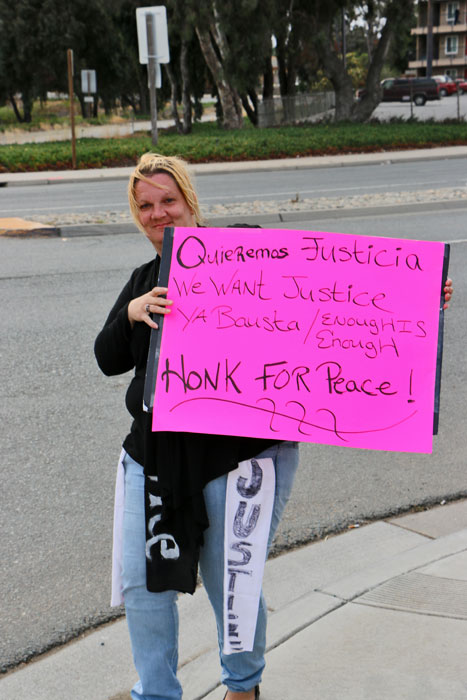 Quieremos Justicia
We WANT Justice
YA Bausta / ENough IS
Enough
HONK FOR Peace!
JUSTICIA